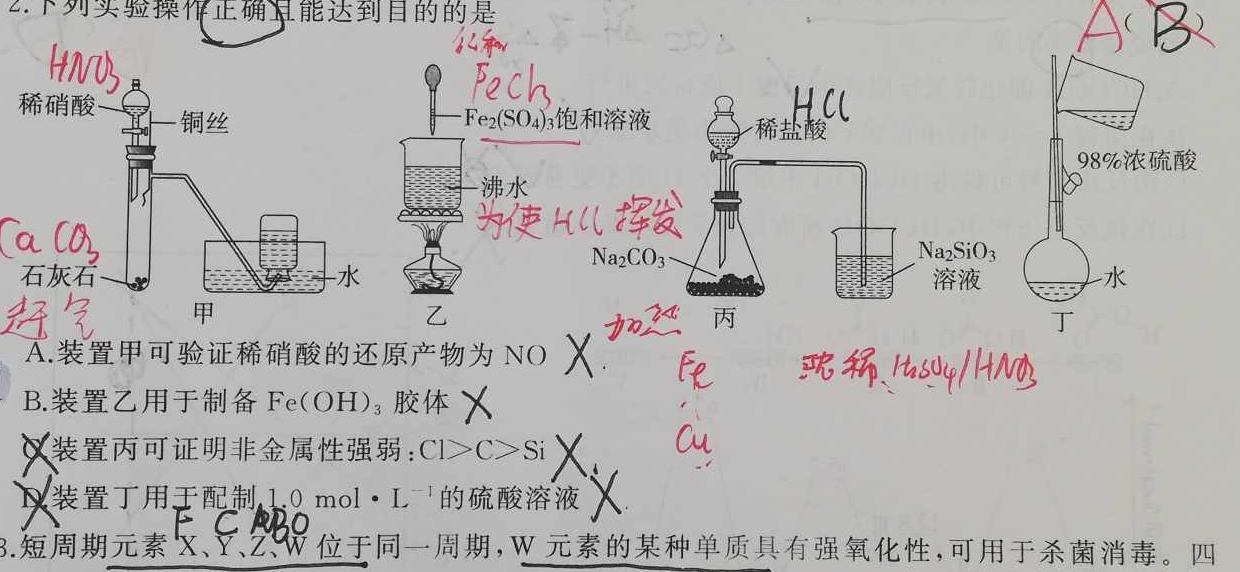 2.下列实验操作正确且能达到目的的是
A(B)
HNO3
稀硝酸
铜丝
CaCO3
石灰石
水
赶气
甲
饱和
FeCl3
Fe₂(SO₄)₃饱和溶液
沸水
乙
为使HCl挥发
HCl
稀盐酸
Na₂CO₃
Na₂SiO₃
溶液
丙
98%浓硫酸
水
丁
加热
Fe
Cu
浓稀H2SO4/HNO3
A.装置甲可验证稀硝酸的还原产物为 NO X
B.装置乙用于制备 Fe(OH)₃ 胶体 X
C.装置丙可证明非金属性强弱:Cl>C>Si X
D.装置丁用于配制 1.0 mol·L⁻¹的硫酸溶液 X
F C O
3.短周期元素 X、Y、Z、W 位于同一周期,W 元素的某种单质具有强氧化性,可用于杀菌消毒。四